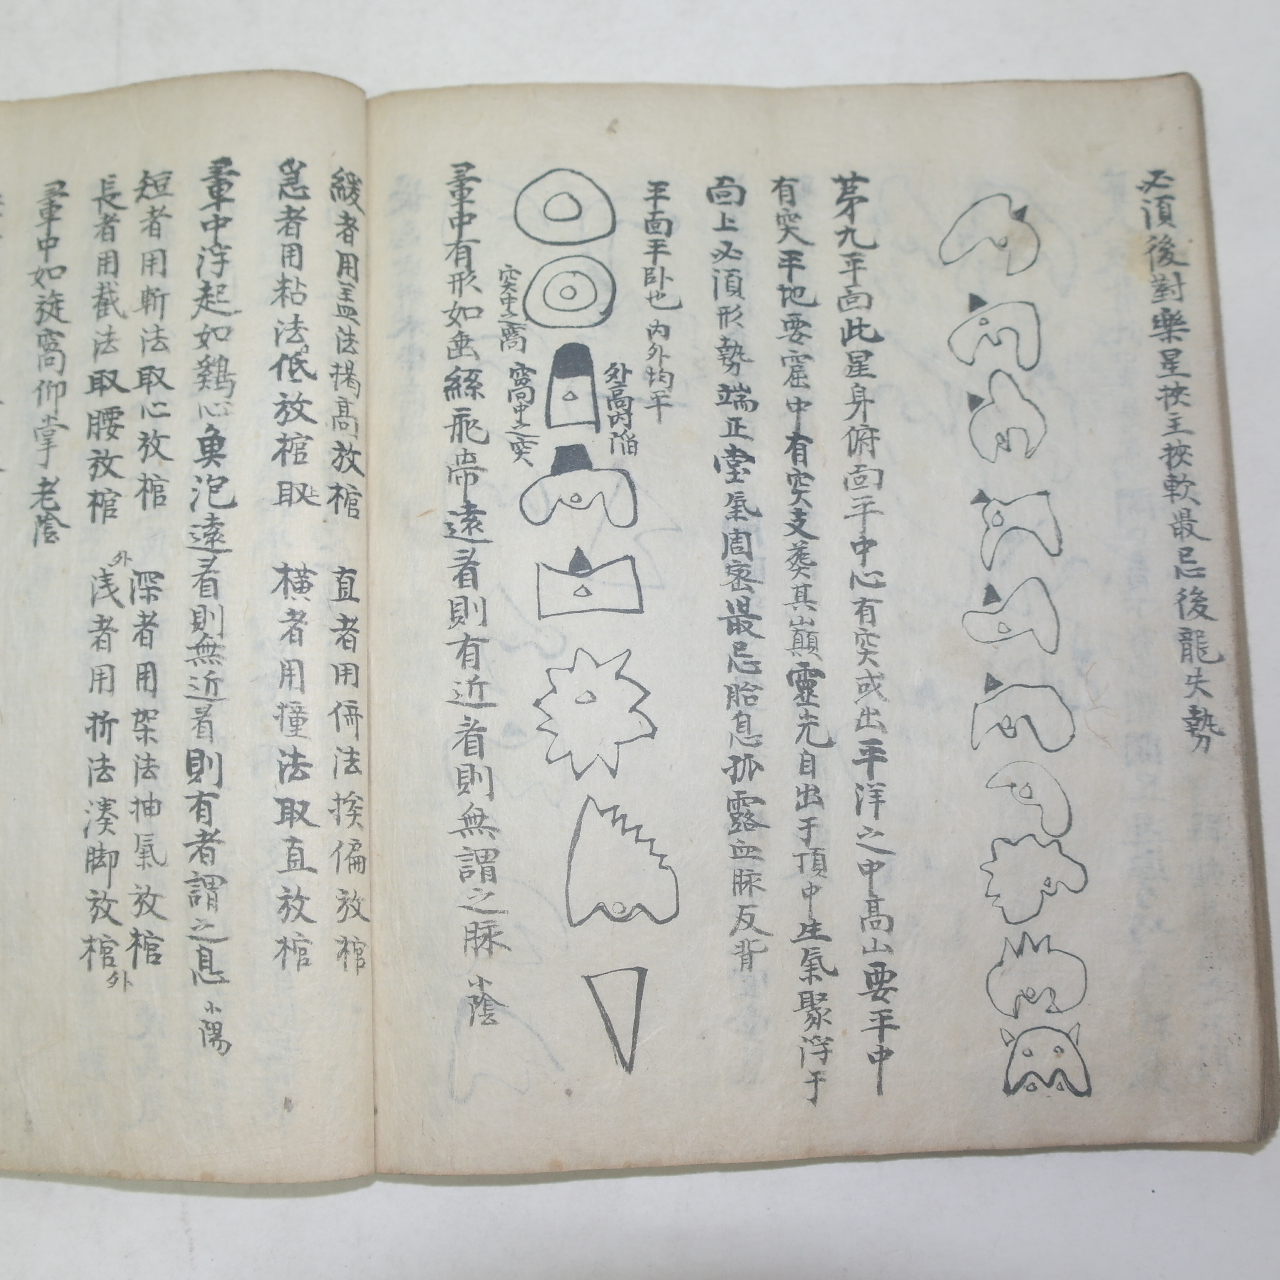 必須後對樂星挨主挨軟最忌後龍失勢
苐九平面此星身俯面平中心有突或出平洋之中高山要平中
有突平地要窟中有突支葬其巓靈光自出于頂中生氣聚浮于
面上必須形勢端正堂氣周密最忌胎息孤露血脉反背
平面平卧也 內外均平
外高內陷
突中之窩
窩中之突
暈中有形如垂絲飛帶遠看則有近看則無謂之脉 小陰
緩者用盖法揭高放棺 直者用倚法挨偏放棺
急者用粘法低放棺取 橫者用撞法取直放棺
暈中浮起如鷄心魚泡遠看則無近看則有者謂之息 小陽
短者用斬法取心放棺 深者用架法抽氣放棺
長者用截法取腰放棺 外浅者用折法湊脚放棺外
暈中如旋窩仰掌老陰